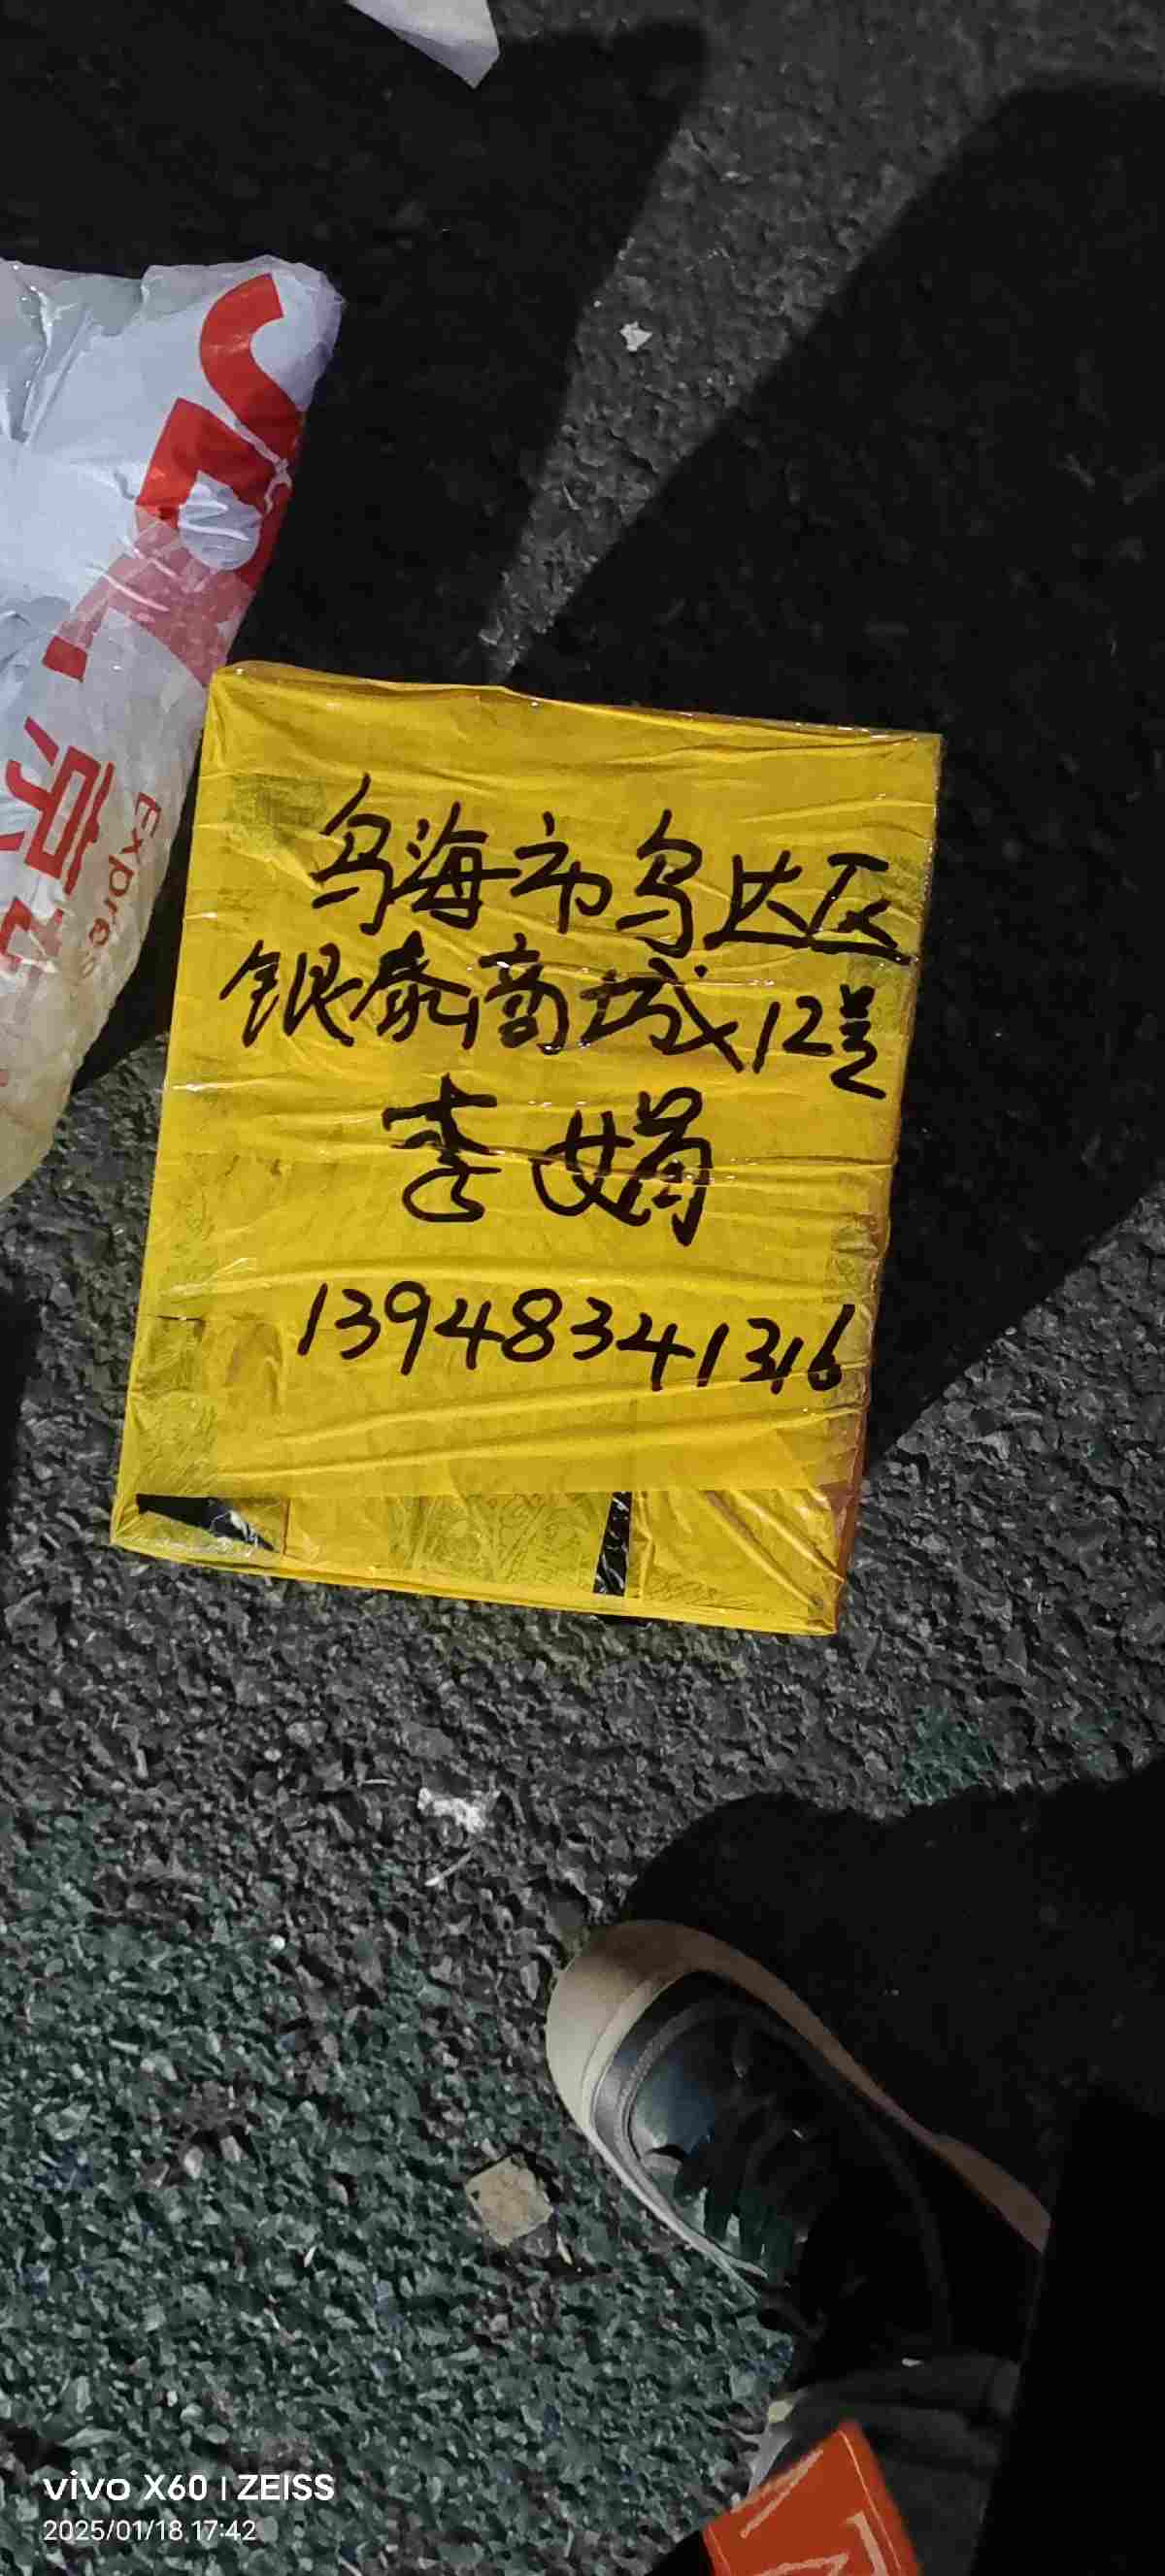 JD
京
Express
乌海市乌达区
银泰商城12号
李娟
13948341316
vivo X60 | ZEISS
2025/01/18 17:42